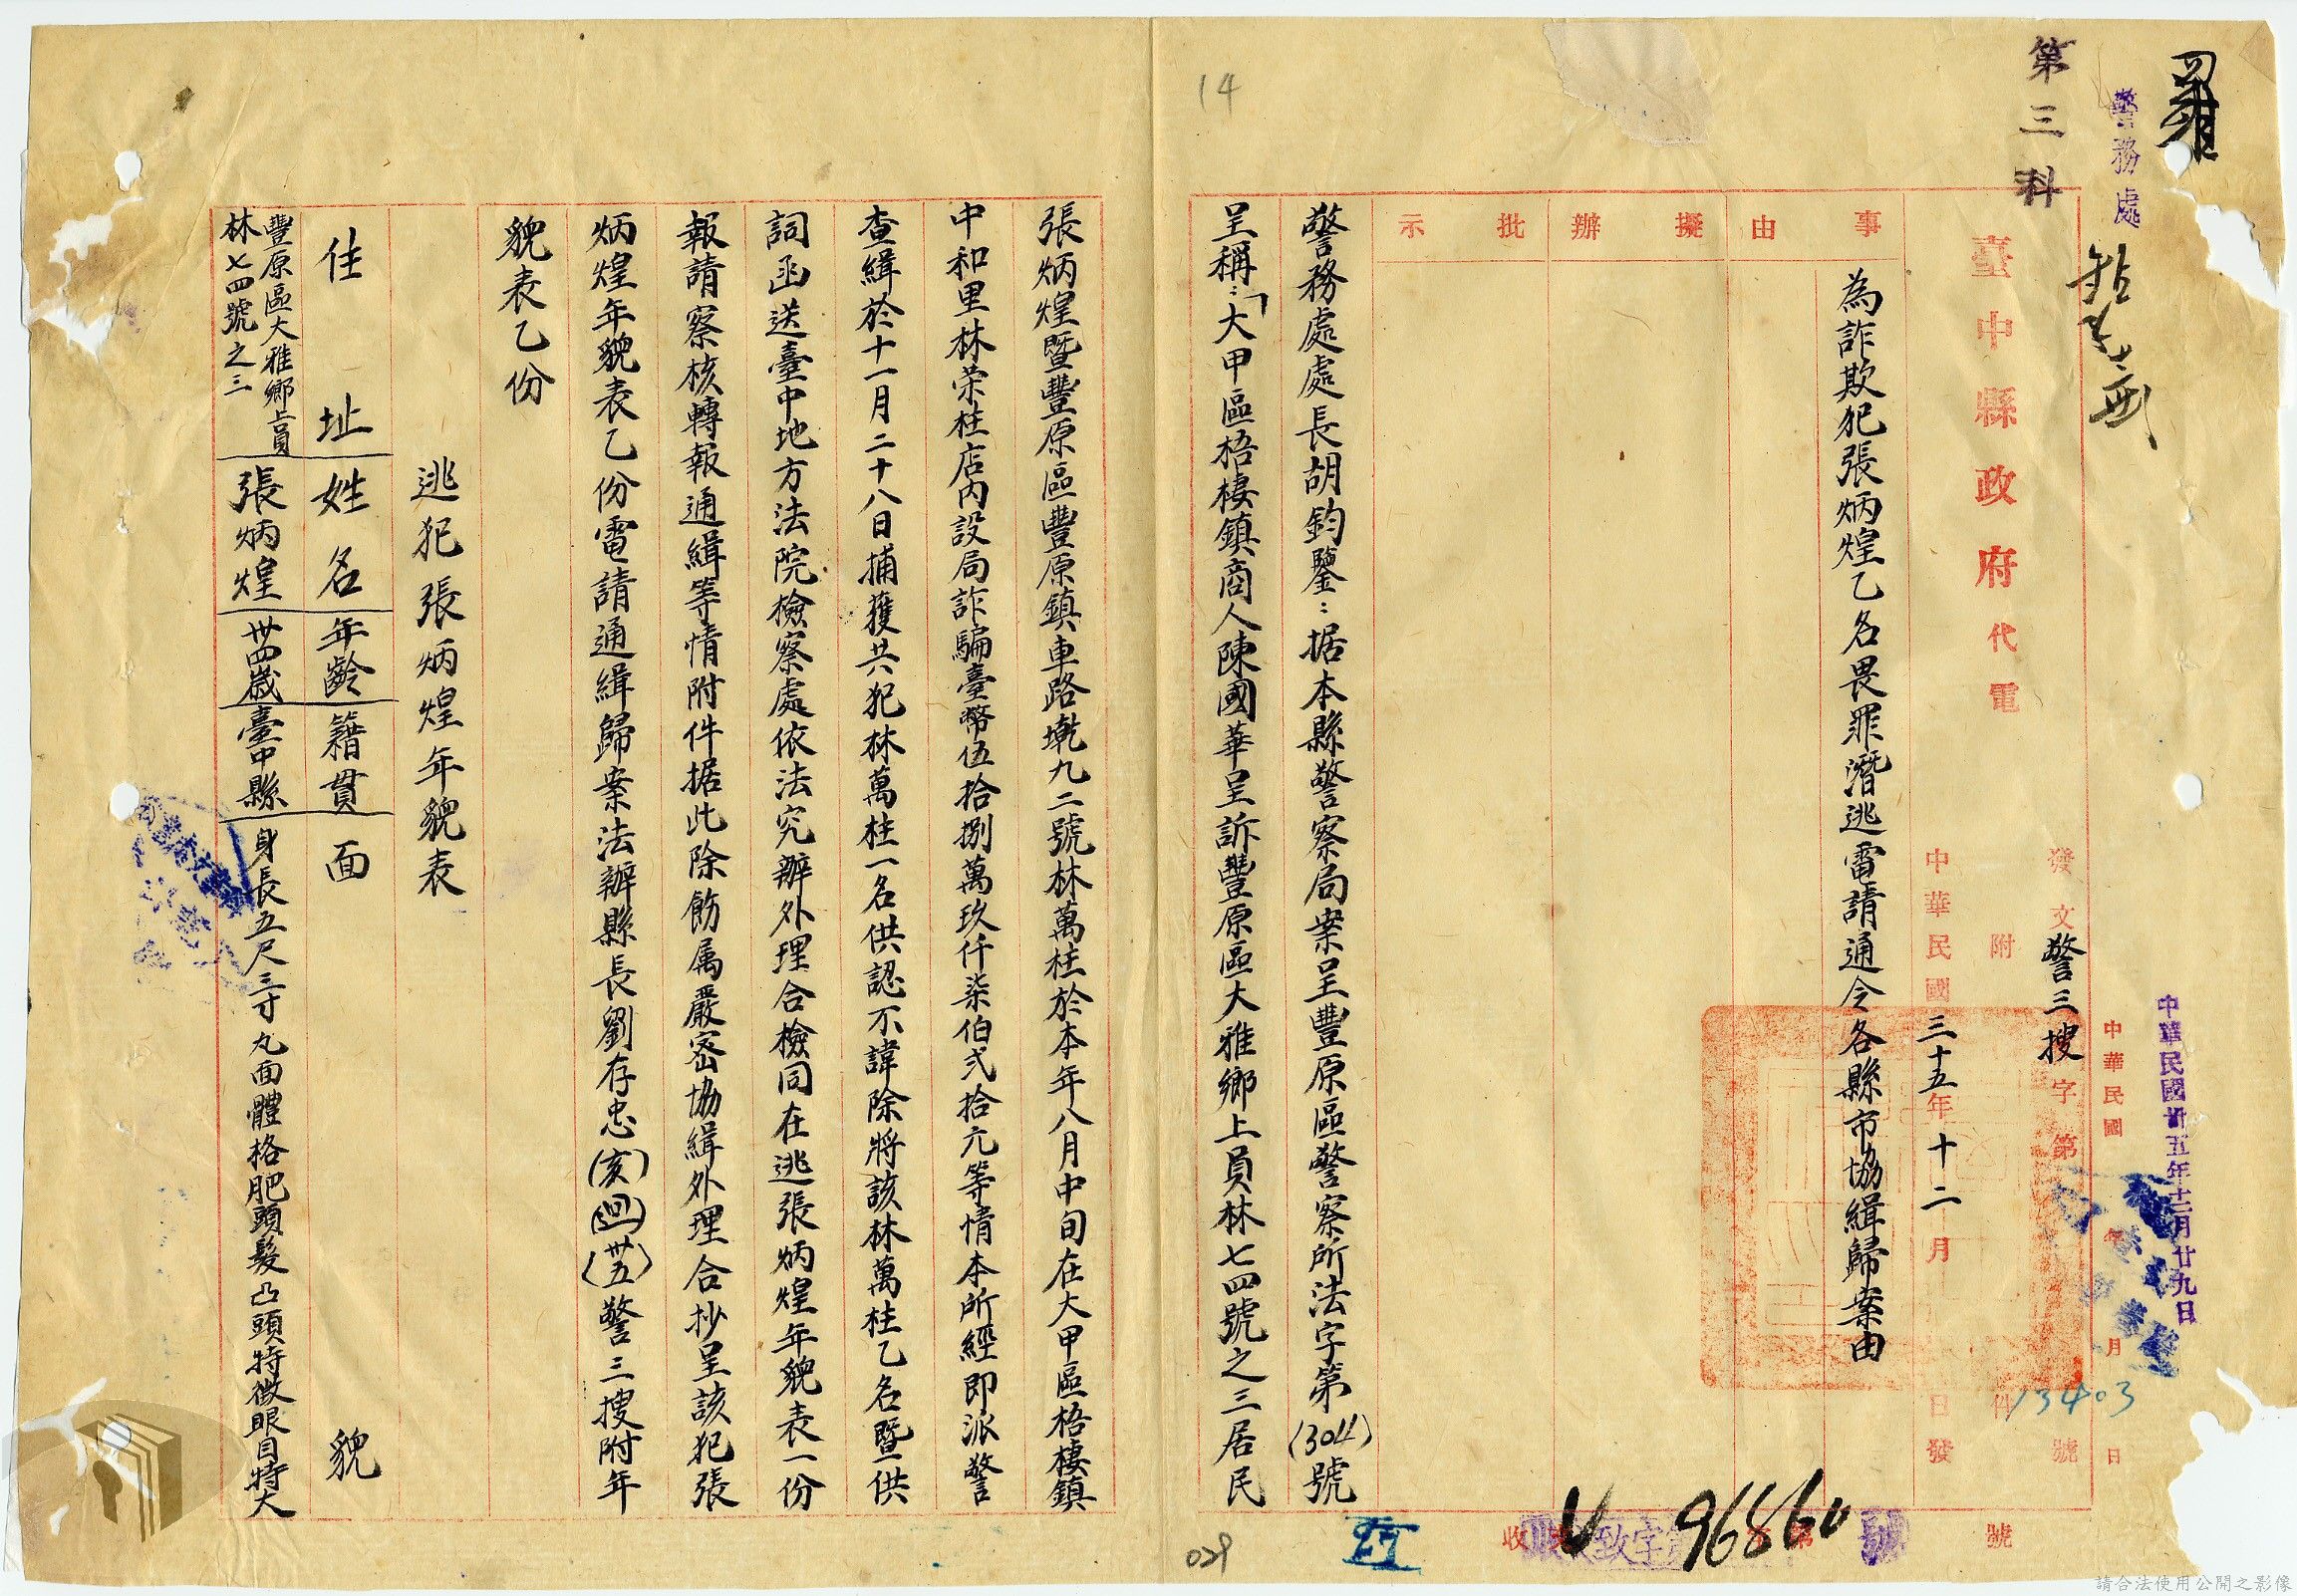 第三科
警務處
臺中縣政府代電
發文警三搜字第13403號
附件
中華民國三十五年十二月日發
中華民國年月日
中華民國卅五年十二月廿九日
事由
擬辦
批示
為詐欺犯張炳煌乙名畏罪潛逃電請通令各縣市協緝歸案由
警務處處長胡鈞鑒：据本縣警察局案呈豐原區警察所法字第(304)號
呈稱：「大甲區梧棲鎮商人陳國華呈訴豐原區大雅鄉上員林七四號之三居民
張炳煌暨豐原區豐原鎮車路墘九二號林萬柱於本年八月中旬在大甲區梧棲鎮
中和里林荣柱店內設局詐騙臺幣伍拾捌萬玖仟柒伯弍拾元等情本所經即派警
查緝於十一月二十八日捕獲共犯林萬柱一名供認不諱除將該林萬柱乙名暨供
詞函送臺中地方法院檢察處依法究辦外理合檢同在逃張炳煌年貌表一份
報請察核轉報通緝等情附件据此除飭属嚴密協緝外理合抄呈該犯張
炳煌年貌表乙份電請通緝歸案法辦縣長劉存忠(亥)(迴)(卅五)警三搜附年
貌表乙份
逃犯張炳煌年貌表
住址
姓名
年齡
籍貫
面貌
豐原區大雅鄉上員
林七四號之三
張炳煌
卅四歲
臺中縣
身長五尺三寸丸面體格肥頭髮凸頭特徵眼目特大
收
致字第96860號
號
14
029
請合法使用公開之影像